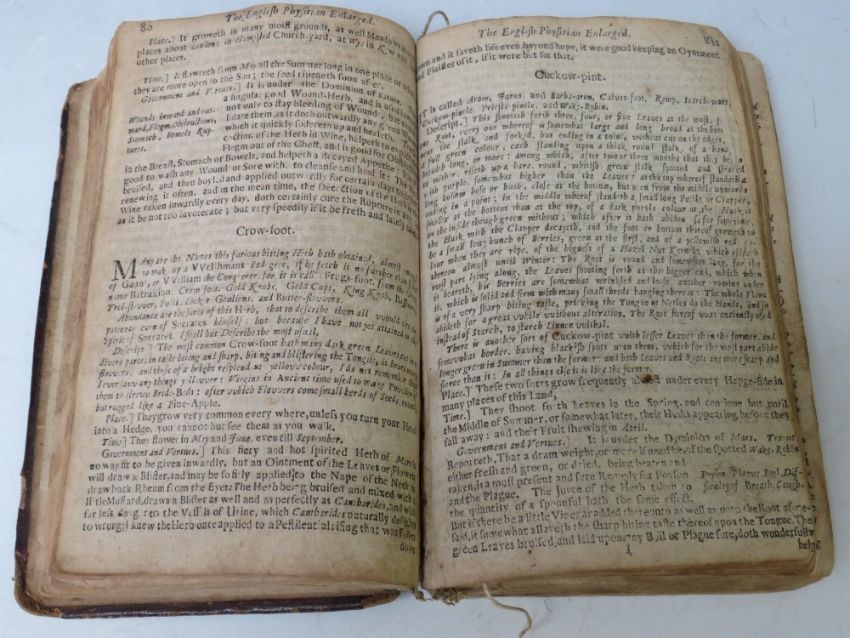 80
The English Physitian Enlarged.
Place.] It groweth in many moist grounds, as well Meadows
places about London: in Hampsted Church-yard, at Wye in Kent and
other places.
Time.] It flowreth from May all the Summer long in one place or other
they are more open to the Sun; the seed ripeneth soon after.
Government and Vertues.] It is under the Dominion of Saturn
Wounds inward and out-
ward, Flegm, Obstructions,
Stomach, Bowels Rup-
tures.
a singular good Wound-Herb, and is used
not only to stay bleeding of Wounds,
lidate them, as it doth outwardly any green Wound,
which it quickly sodereth up and healeth.
coction of the Herb in Wine, helpeth to
Flegm out of the Chest, and is good for Obstructions
in the Breast, Stomach or Bowels, and helpeth a decayed Appetite.
good to wash any Wound or Sore with to cleanse and heal it. The
bruised, and then boyled and applied outwardly for certain days together
renewing it often, and in the mean time, the Decoction of the Herb in
Wine taken inwardly every day, doth certainly cure the Rupture in any
as it be not too inveterate; but very speedily if it be fresh and lately
Crow-foot.
MAny are the Names this furious biting Herb hath obtained, almost
to make up a VVelshmans Pedigree, if he fetch it no farther than
of Gaunt, or VVilliam the Conquerer, for it is call'd Frogs-foot, from the
name Batrakion. Crow foot, Gold Knobs, Gold Cups, King Knob,
Trol-flower, Polts, Locket Goulions, and Butter-flowers.
Abundance are the sorts of this Herb, that to describe them all would tire the
patience even of Socrates himself; but because I have not yet attained to the
Spirit of Socrates, I shall but Describe the most usual.
Descript.] The most common Crow-foot hath many dark green Leaves cut into
divers parts, in taste biting and sharp, biting and blistering the Tongue, it bears many
flowers, and those of a bright resplendent yellow colour, I do not remember that
I ever saw any thing yellower: Virgins in Ancient time used to make Powder of
them to strew Bride-Beds: after which Flowers come small heads of Seeds, round,
but rugged like a Pine-Apple.
Place.] They grow very common every where, unless you turn your Head
into a Hedge, you cannot but see them as you walk.
Time.] They flower in May and June, even till September.
Government and Vertues.] This fiery and hot spirited Herb of Mars is
no way fit to be given inwardly, but an Ointment of the Leaves or Flowers
will draw a Blister, and may be so fitly applied to the Nape of the Neck to
draw back Rheum from the Eyes: The Herb being bruised and mixed with a
little Mustard, draws a Blister as well and as perfectly as Cantharides, and with
far less danger to the Vessels of Urine, which Cantharides naturally delight
to wrong; I knew the Herb once applied to a Pestilential rising that was fallen
down
The English Physitian Enlarged.
down and it saved life even beyond hope, it were good keeping an Oyntment
and Plaister of it, if it were but for that.
Cuckow-pint.
It is called Aram, Janus, and Barba-aron, Calves-foot, Ramp, Starch-wort,
Cuckow-pintle, Priests-pintle, and Wake-Robin.
Descript.] This shooteth forth three, four, or five Leaves at the most, from
one Root, every one whereof is somewhat large and long broad at the bottom
next the stalk, and forked, but ending in a point, without cut on the edges,
full green colour, each standing upon a thick round stalk, of a hand-
breadth long, or more: among which, after two or three months that they be
to wither, riseth up a bare round, whitish green stalk spotted and straked
with purple, somewhat higher than the Leaves: at the top whereof standeth a
long hollow hose or husk, close at the bottom, but open from the middle upwards
ending in a point: in the middle whereof standeth a small long Pestle or Clapper,
smaller at the bottom than at the top, of a dark purple colour as the Husk is
on the inside though green without; which after it hath abiden so for some time,
the Husk with the Clapper decayeth, and the foot or bottom thereof groweth to
be a small long bunch of Berries, green at the first, and of a yellowish red co-
lour when they are ripe, of the bigness of a Hazel Nut Kernel, which abideth
thereon almost until Winter: The Root is round and somewhat long, for the
most part lying along, the Leaves shooting forth at the bigger end, which when
it beareth, his Berries are somewhat wrinkled and loose, another rowing under
it, which is solid and firm with many small threds hanging thereat: The whole Plant
is of a very sharp biting taste, pricking the Tongue as Netles do the Hands, and so
abideth for a great while without alteration. The Root hereof was anciently used
instead of Starch, to starch Linnen withal.
There is another sort of Cuckow-pint with lesser Leaves than the former, and
somewhat harder, having blackish spots upon them, which for the most part abide
longer green in Summer than the former: and both Leaves and Roots are more sharp and
fierce than it: In all things else it is like the former.
Place.] These two sorts grow frequently almost under every Hedge-side in
many places of this Land,
Time.] They shoot forth Leaves in the Spring, and continue but until
the Middle of Summer, or somewhat later, their Husks appearing before they
fall away: and their Fruit shewing in April.
Government and Vertues.] It is under the Dominion of Mars. Tragus
Reporteth, That a dram weight, or more if need be, of the spotted Wake-Robin
either fresh and green, or dried, being beaten and
taken, is a most present and sure Remedy for Poyson
and the Plague. The Juyce of the Herb taken to
the quantity of a spoonful hath the same effect.
Poyson Plague, Boyl, Dif-
ficulty of Breath, Cough.
But if there be a little Vinegar added thereunto as well as unto the Root afore-
said, it somewhat allayeth the sharp biting taste thereof upon the Tongue. The
green Leaves bruised, and laid upon any Boil or Plague sore, doth wonderfully
help